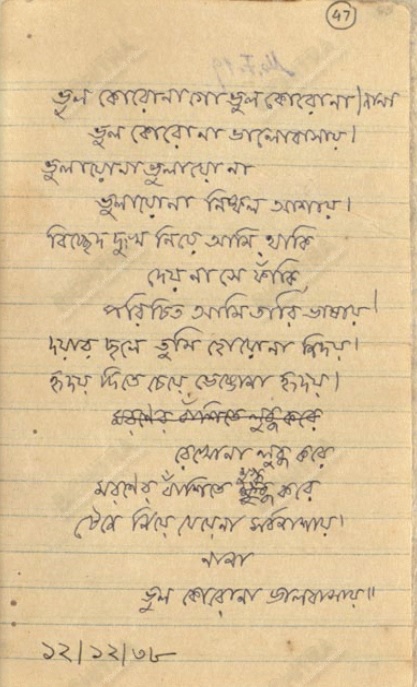 47
ভুল কোরোনা গো ভুল কোরোনা / নানা
ভুল কোরোনা ভালোবাসায়।
ভুলায়োনা ভুলায়োনা
ভুলায়োনা নিষ্ফল আশায়।
বিচ্ছেদ দুঃখ নিয়ে আমি থাকি
দেয় না সে ফাঁকি
পরিচিত আমি তারি ভাষায়।
দয়ার ছলে তুমি হোয়োনা নিদয়।
হৃদয় দিতে চেয়ে ভেঙোনা হৃদয়।
মরণের বাঁশিতে লুব্ধ করে
রেখোনা লুব্ধ করে
মরণের বাঁশিতে মুগ্ধ করে
টেনে নিয়ে যেয়োনা সর্বনাশায়।
নানা
ভুল কোরোনা ভালবাসায়॥
১২/১২/৩৮